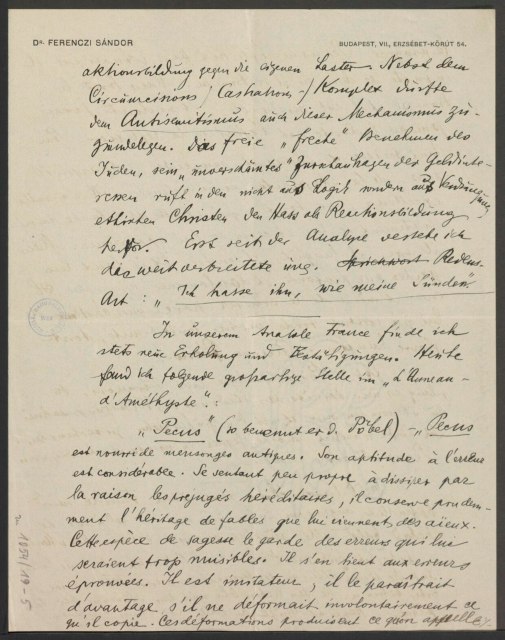 Dr. FERENCZI SÁNDOR
BUDAPEST, VII., ERZSÉBET-KÖRÚT 54.
aktionsbildung gegen die eigenen Laster. Nebst dem
Circumcisions / Castrations -/ Komplex dürfte
dem Antisemitismus auch dieser Mechanismus zu-
grundeliegen. Das freie „freche" Benehmen des
Juden, sein „unverschämtes" Zurschautragen der Geldinte-
ressen ruft in den nicht aus Logik sondern aus Verdrängung
ethischen Christen den Hass als Reactionsbildung
hervor. Erst seit der Analyse verstehe ich
das weitverbreitete ung. Sprichwort Redens-
Art: „Ich hasse ihn, wie meine Sünden".
In unserem Anatole France finde ich
stets neue Erholung und Bestätigungen. Heute
fand ich folgende großartige Stelle im „L'Anneau
d'Améthyste".:
„Pecus" (so benennt er d. Pöbel) - „Pecus
est nourri de mensonges antiques. Son aptitude à l'erreur
est considérable. Se sentant peu propre à dissiper par
la raison les préjugés héréditaires, il conserve prudem-
ment l'héritage de fables que lui viennent des aïeux.
Cette espèce de sagesse le garde des erreurs qui lui
seraient trop nuisibles. Il s'en tient aux erreurs
éprouvées. Il est imitateur, il le paraîtrait
d'avantage s'il ne déformait involontairement ce
qu'il copie. Ces déformations produisent ce qu'on appelle